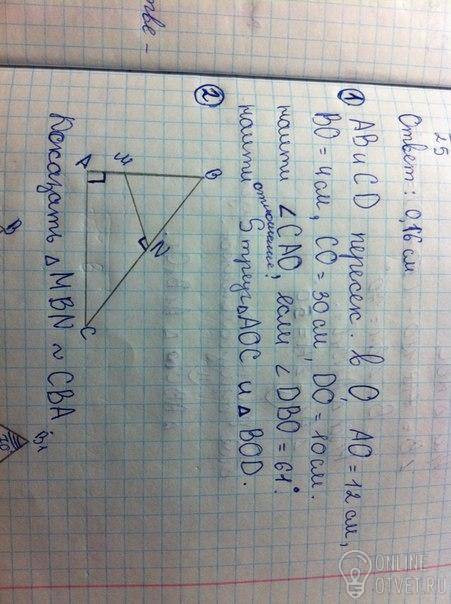 тве -
25
Ответ: 0,16 см
① AB и CD пересек. в O, AO = 12 см,
BO = 4 см, CO = 30 см, DO = 10 см.
найти ∠CAO, если ∠DBO = 61°.
найти отношение: S треуг △AOC и △BOD.
②
B
M
N
A
C
Доказать △MBN ~ CBA.
B
B₁
ONLINE
OTVET.RU